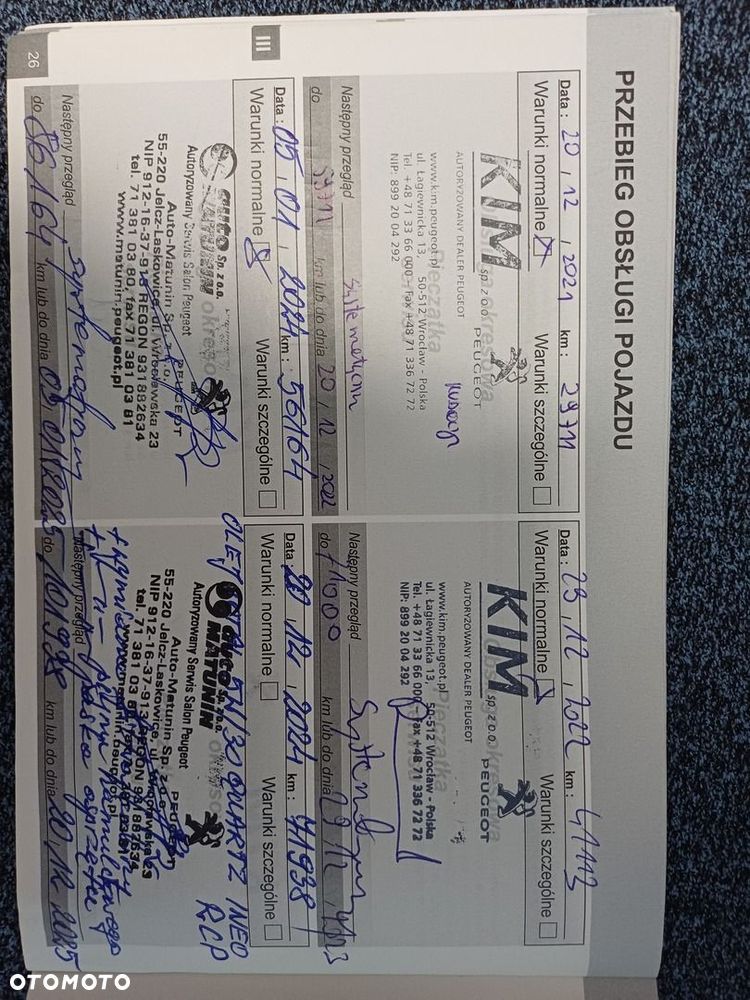 PRZEBIEG OBSŁUGI POJAZDU
Data : 20 , 12 , 2021 km : 29711
Warunki normalne Warunki szczególne
KIM sp. z o.o. PEUGEOT
AUTORYZOWANY DEALER PEUGEOT
www.kim.peugeot.pl
ul. Łagiewnicka 13, 50-512 Wrocław - Polska
Tel. +48 71 33 66 000 - Fax +48 71 336 72 72
NIP: 899 20 04 292
Pieczątka
Następny przegląd
do 59711 km lub do dnia 20 , 12 , 2022
Data : 23 , 12 , 2022 km : 41113
Warunki normalne Warunki szczególne
KIM sp. z o.o. PEUGEOT
AUTORYZOWANY DEALER PEUGEOT
www.kim.peugeot.pl
ul. Łagiewnicka 13, 50-512 Wrocław - Polska
Tel. +48 71 33 66 000 - Fax +48 71 336 72 72
NIP: 899 20 04 292
Pieczątka
Następny przegląd
do 71000 km lub do dnia
III
Data : 05 , 01 , 2024 km : 56164
Warunki normalne Warunki szczególne
auto Sp. z o.o.
MATUNIN
Autoryzowany Serwis Salon Peugeot
PEUGEOT
Auto-Matunin Sp. z o.o.
55-220 Jelcz-Laskowice, ul. Wrocławska 23
NIP 912-16-37-913 REGON 931882634
tel. 71 381 03 80, fax 71 381 03 81
www.matunin.peugeot.pl
Następny przegląd
do 86164 km lub do dnia 05/01/2025
Data : 20 , 12 , 2024 km : 71938
Warunki normalne Warunki szczególne
OLEJ 5W/30 QUARTZ INEO
RCP
auto Sp. z o.o.
MATUNIN
Autoryzowany Serwis Salon Peugeot
PEUGEOT
Auto-Matunin Sp. z o.o.
55-220 Jelcz-Laskowice, ul. Wrocławska 23
NIP 912-16-37-913 REGON 931882634
tel. 71 381 03
Następny przegląd
do 101938 km lub do dnia 20 , 12 , 2025
26
OTOMOTO